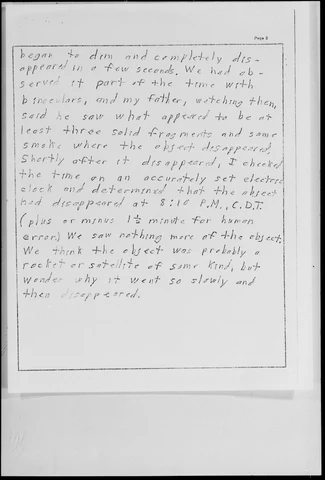 Page 8
began to dim and completely dis-
appeared in a few seconds. We had ob-
served it part of the time with
binoculars, and my father, watching then,
said he saw what appeared to be at
least three solid fragments and some
smoke where the object disappeared.
Shortly after it disappeared, I checked
the time on an accurately set electric
clock and determined that the object
had disappeared at 8:10 P.M., C.D.T.
(plus or minus 1½ minute for human
error) We saw nothing more of the object.
We think the object was probably a
rocket or satellite of some kind, but
wonder why it went so slowly and
then disappeared.